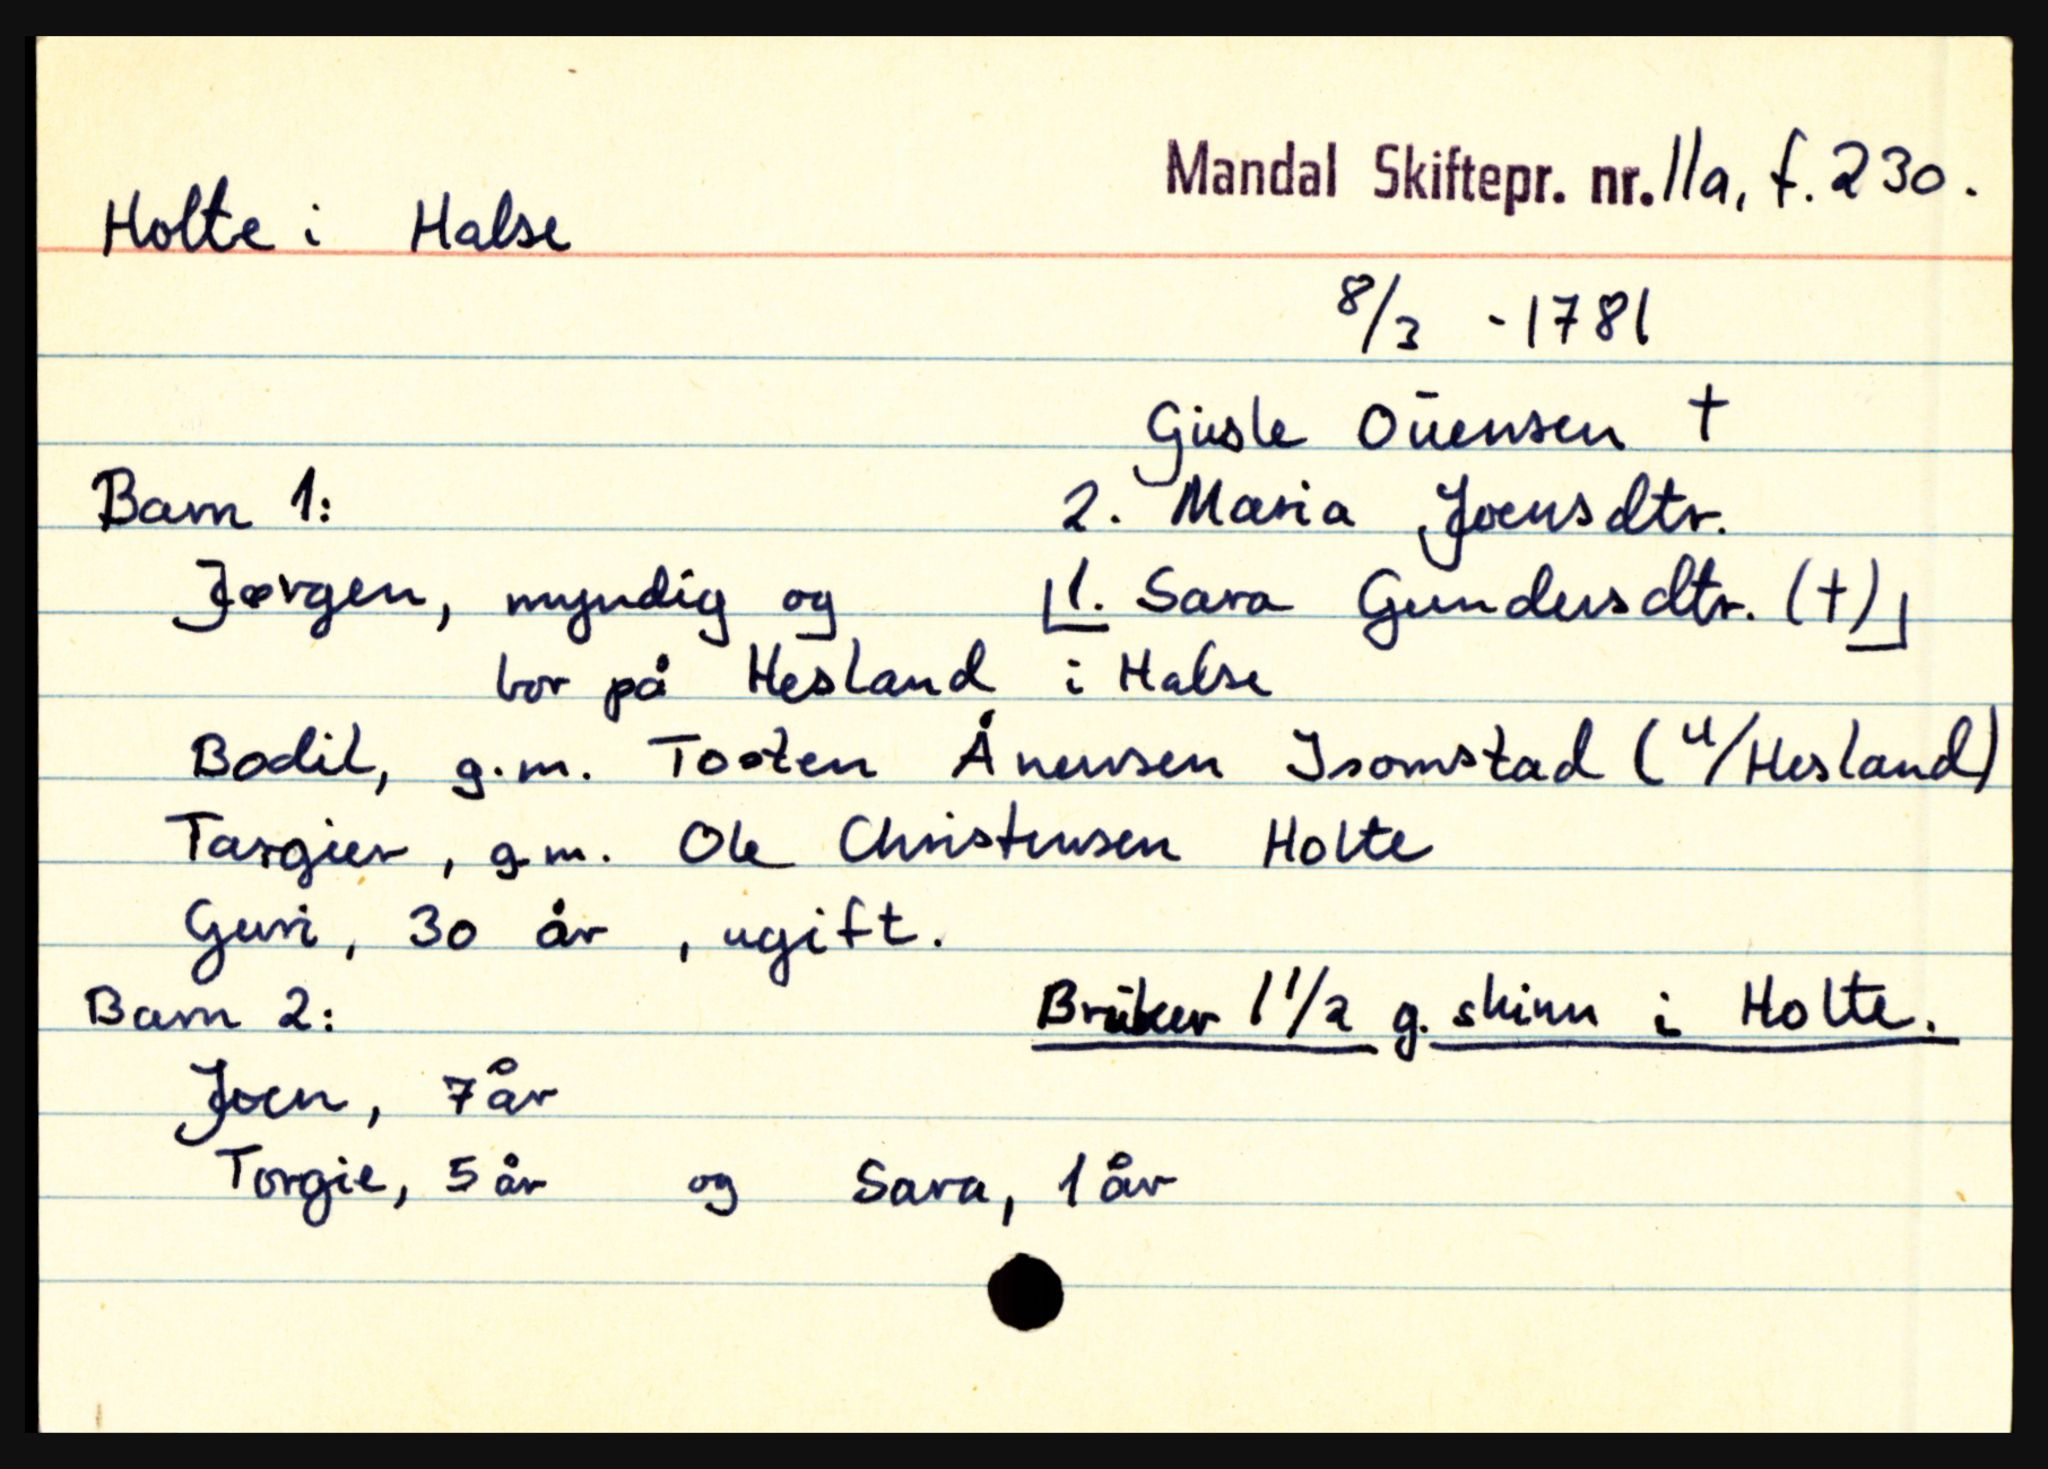 Mandal Skiftepr. nr. 11a, f. 230.
Holte i Halse
8/3 - 1781
Giisle Oūensen †
Barn 1:
2. Maria Joensdtr.
Jørgen, myndig og
⌊1. Sara Gundersdtr. (†)⌋
bor på Hesland i Halse
Bodil, g.m. Tosten Ånensen Isomstad (u/Hesland)
Targier, g.m. Ole Christensen Holte
Guri, 30 år, ugift.
Barn 2:
Brūker 1 1/2 g. skinn i Holte.
Joen, 7 år
Torgie, 5 år og Sara, 1 år